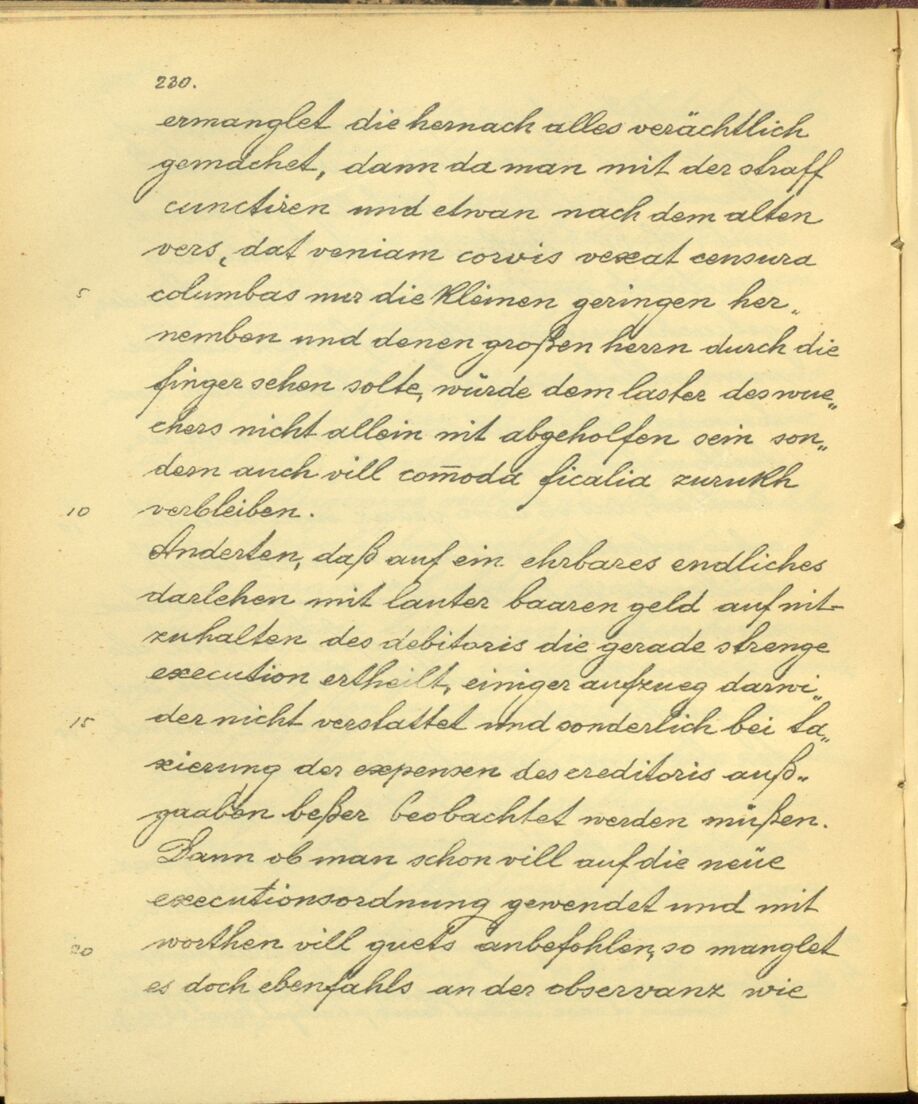 230.
ermanglet die hernach alles verächtlich
gemachet, dann da man mit der straff
cunctiren und etwan nach dem alten
vers, dat veniam corvis vexat censura
5 columbas nur die kleinen geringen her„
nemben und denen großen herrn durch die
finger sehen solte, würde dem laster des wue„
chers nicht allein nit abgeholfen sein son„
dern auch vill com̄oda ficalia zurukh
10 verbleiben.
Anderten, daß auf ein ehrbares endliches
darlehen mit lauter baaren geld auf nit-
zuhalten des debitoris die gerade strenge
execution ertheilt, einiger aufzueg darwi„
15 der nicht verstattet und sonderlich bei ta„
xierung der expensen des creditoris auß„
gaaben beßer beobachtet werden müßen.
Dann ob man schon vill auf die neüe
executionsordnung gewendet und mit
20 worthen vill guets anbefohlen, so manglet
es doch ebenfahls an der observanz wie